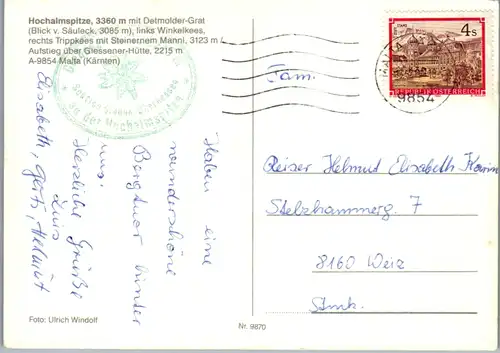 Hochalmspitze, 3360 m mit Detmolder-Grat
(Blick v. Säuleck, 3085 m), links Winkelkees,
rechts Trippkées mit Steinernem Mannl, 3123 m /
Aufstieg über Giessener-Hütte, 2215 m
A-9854 Malta (Kärnten)
4 S
REPUBLIK ÖSTERREICH
MALTA
9854
an der Hochalmspitze
Fam.
Reiser Helmut Elisabeth Karin
Stelzhammerg. 7
8160 Weiz
Stmk.
Haben eine
wunderschöne
Bergtour hinter
uns.
Herzliche Grüße
Luis
Elisabeth, Gerti, Helmut
Foto: Ulrich Windolf
Nr. 9870